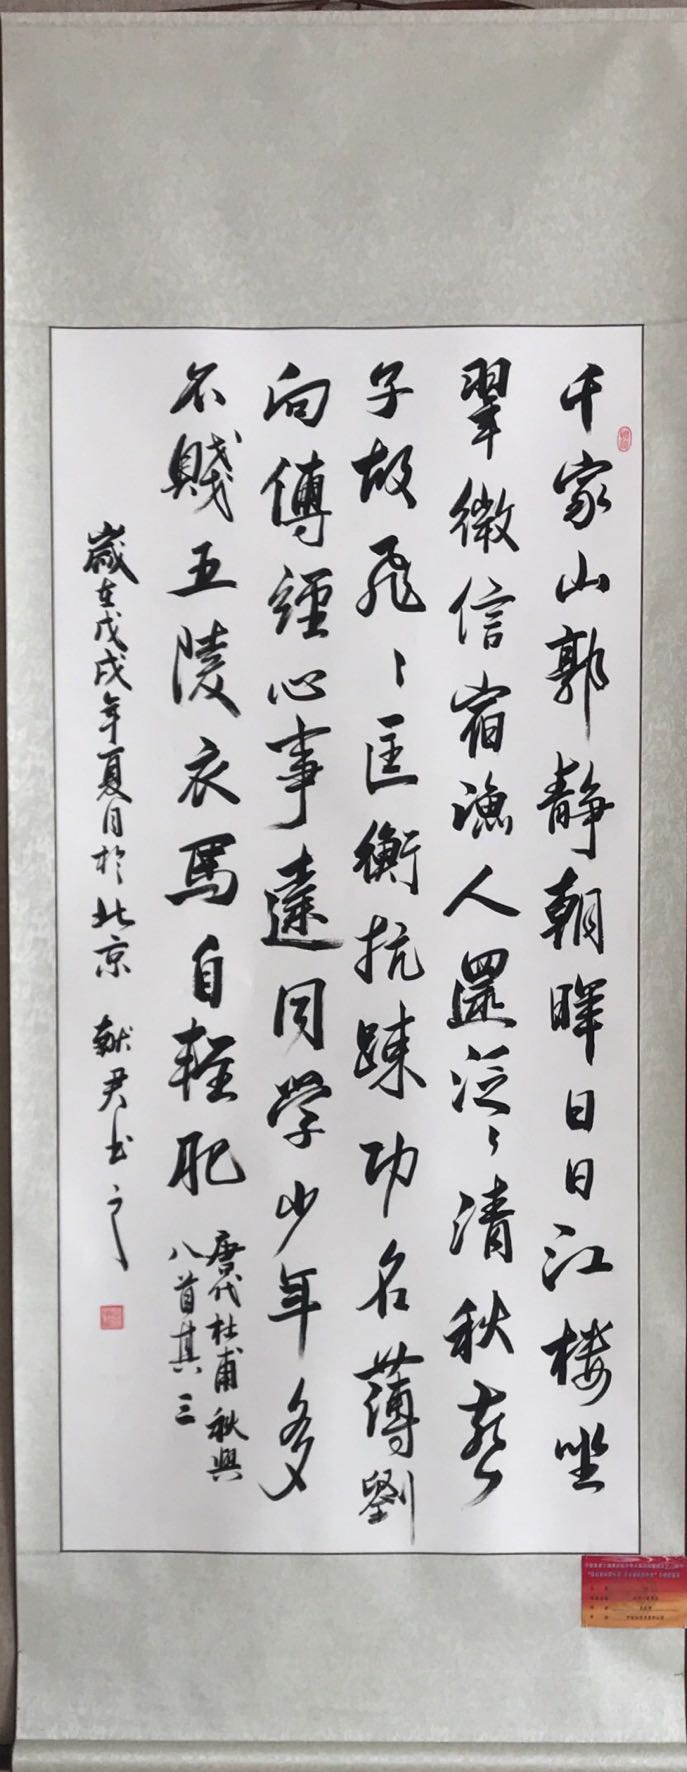 千家山郭静朝暉日日江楼坐
翠微信宿漁人還泛〻清秋燕
子故飛〻匡衡抗疎功名薄劉
向傳經心事違同学少年多
不賤五陵衣馬自輕肥
唐代杜甫秋興
八首其三
歲在戊戌年夏月於北京 献君书